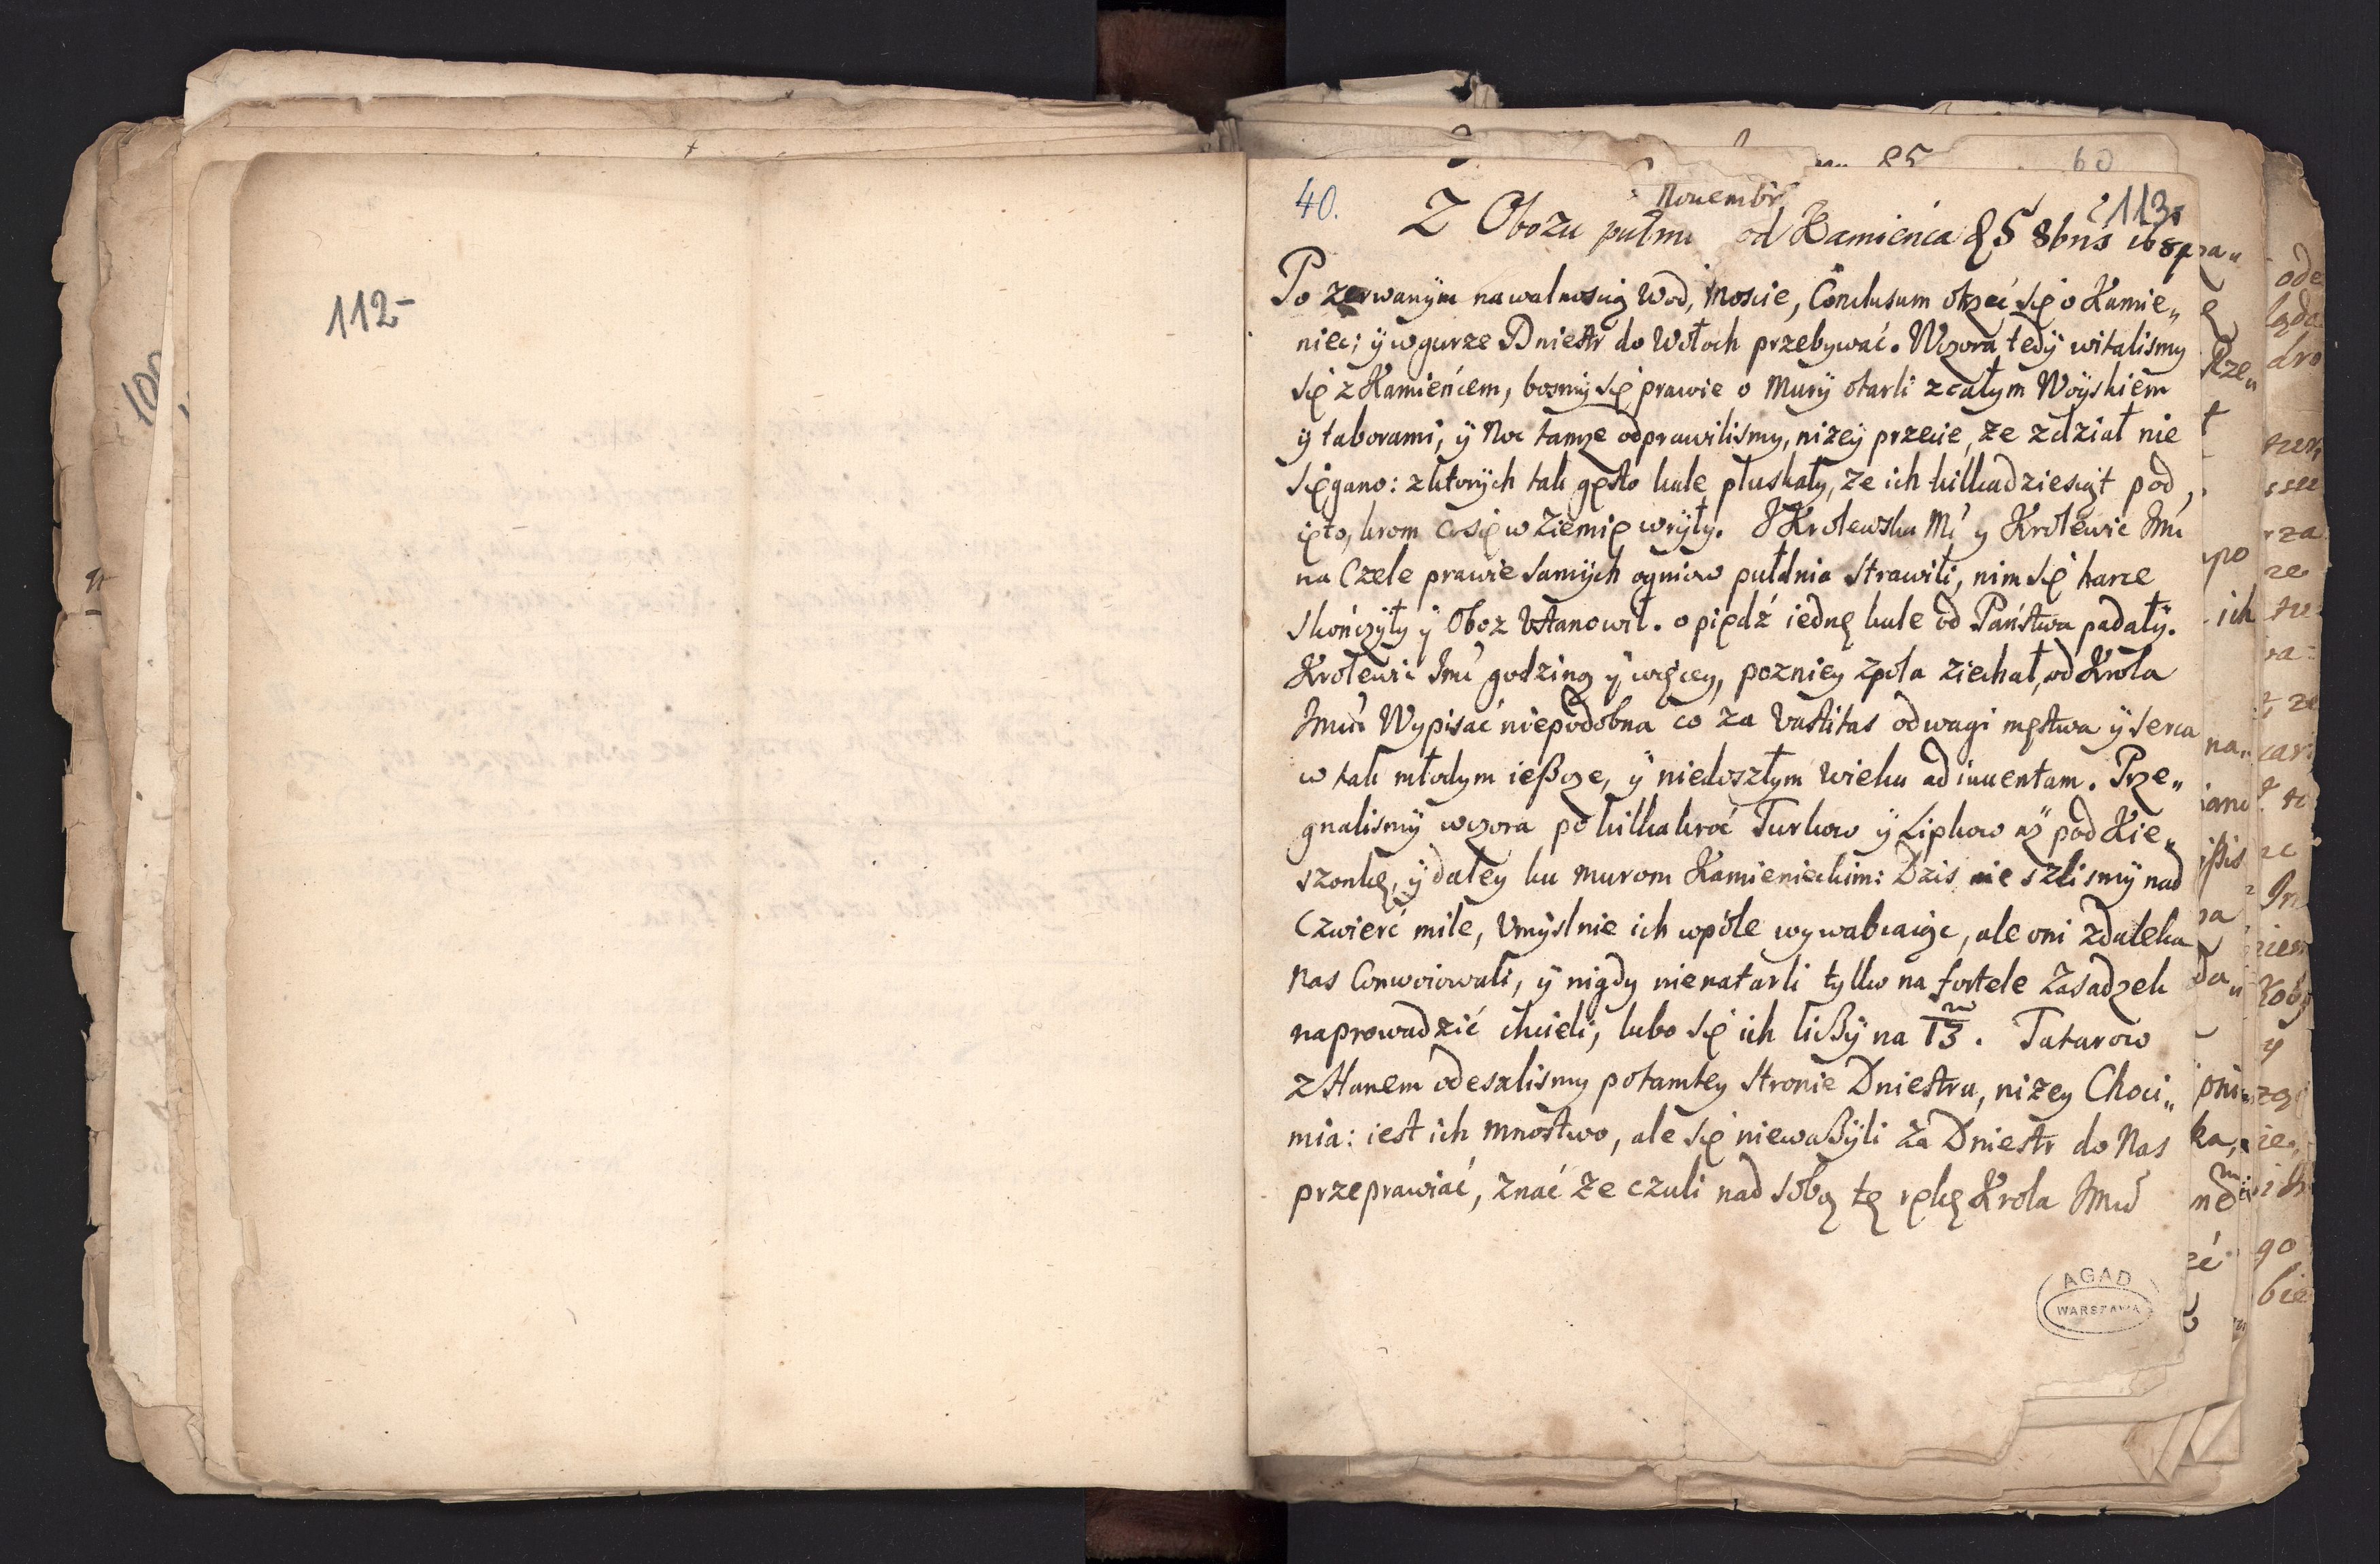 112-
40.
113
60
Nouembr
Z Obozu pułmi od Kamieńca 8bris 1684
Po zerwanym nawalnością wod, Moscie, Conclusum otrzeć się o Kamie„
niec; ÿ wgurze Dniestr do Wołoch przebywać. Wczora tedÿ witalismy
się z Kamieńcem, bosmy się prawie o Murÿ otarli zcałym Woÿskiem
ÿ taborami, ÿ Noc tamże odprawilismy, niżeÿ przecie, że zdział nie
sięgano: zktorÿch tak gęsto kule pluskały, że ich kilkadziesiąt pod„
ięto, krom co się w Ziemię wrÿły. Krolewska Mć y Krolewic Jmć
na Czele prawie samÿch ogniow pułdnia strawili, nim się harce
skończÿły ÿ Oboz Vstanowił. o piędź iednę kule od Państwa padałÿ.
Krolewic Jmć godziną ÿ więcey, pozniey zpola ziechał, od Krola
Jmći Wypisać niepodobna co za Vastitas odwagi męstwa ÿ serca
w tak młodym ießcze, ÿ niedoszłym wieku ad inuentam. Prze„
gnalismÿ wczora po kilkakroć Turkow ÿ Lipkow aż pod Kie„
szonkę, ÿ daleÿ ku murom Kamienieckim: Dzis nie szlismÿ nad
Czwierć mile, Vmÿslnie ich wpole wywabiaiąc, ale oni zdaleka
Nas Conwoiowali, ÿ nigdy nienatarli tylko na fortele Zasadzek
naprowadzić chcieli, lubo się ich lißÿ na 13. Tatarow
z Hanem odeszlismy potamtey stronie Dniestru, niżey Choci„
mia: iest ich mnostwo, ale się niewaßÿli za Dniestr do Nas
przeprawiać, znać że czuli nad sobą tę rękę Krola Jmći
AGAD
WARSZAWA